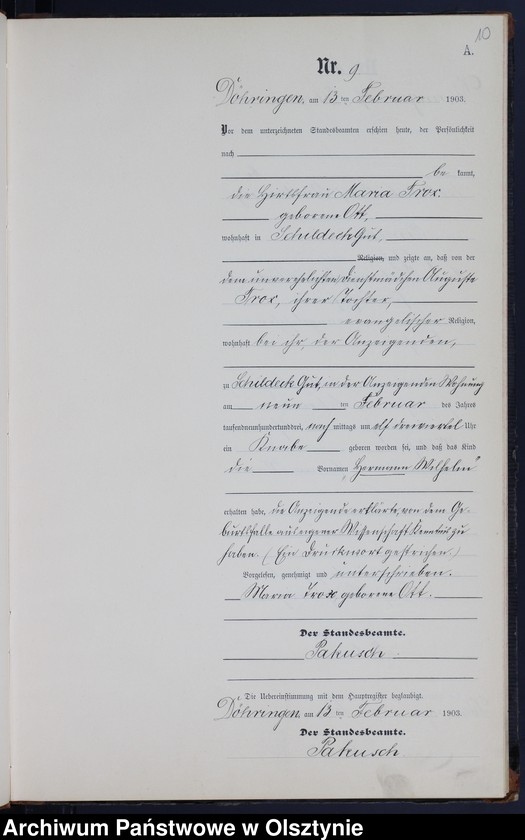 10
A.
Nr. 9
Döhringen, am 13 ten Februar 1903.
Vor dem unterzeichneten Standesbeamten erschien heute, der Persönlichkeit
nach
be kannt,
die Hirtsfrau Maria Trox
geborene Ott,
wohnhaft in Schildeck Gut,
Religion, und zeigte an, daß von der
dem unverehelichten Dienstmädchen Auguste
Trox, ihrer Tochter,
evangelischer Religion,
wohnhaft bei ihr, der Anzeigenden,
zu Schildeck Gut, in der Anzeigenden Wohnung
am neun ten Februar des Jahres
tausendneunhundertunddrei, nach mittags um elf dreiviertel Uhr
ein Knabe geboren worden sei, und daß das Kind
die Vornamen "Hermann Wilhelm"
erhalten habe, die Anzeigende erklärte, von dem Ge-
burtsfalle aus eigener Wissenschaft Kenntnis zu
haben. (Ein Druckwort gestrichen.)
Vorgelesen, genehmigt und unterschrieben.
Maria Trox geborene Ott.
Der Standesbeamte.
Pakusch
Die Uebereinstimmung mit dem Hauptregister beglaubigt.
Döhringen, am 13 ten Februar 1903.
Der Standesbeamte.
Pakusch
Archiwum Państwowe w Olsztynie